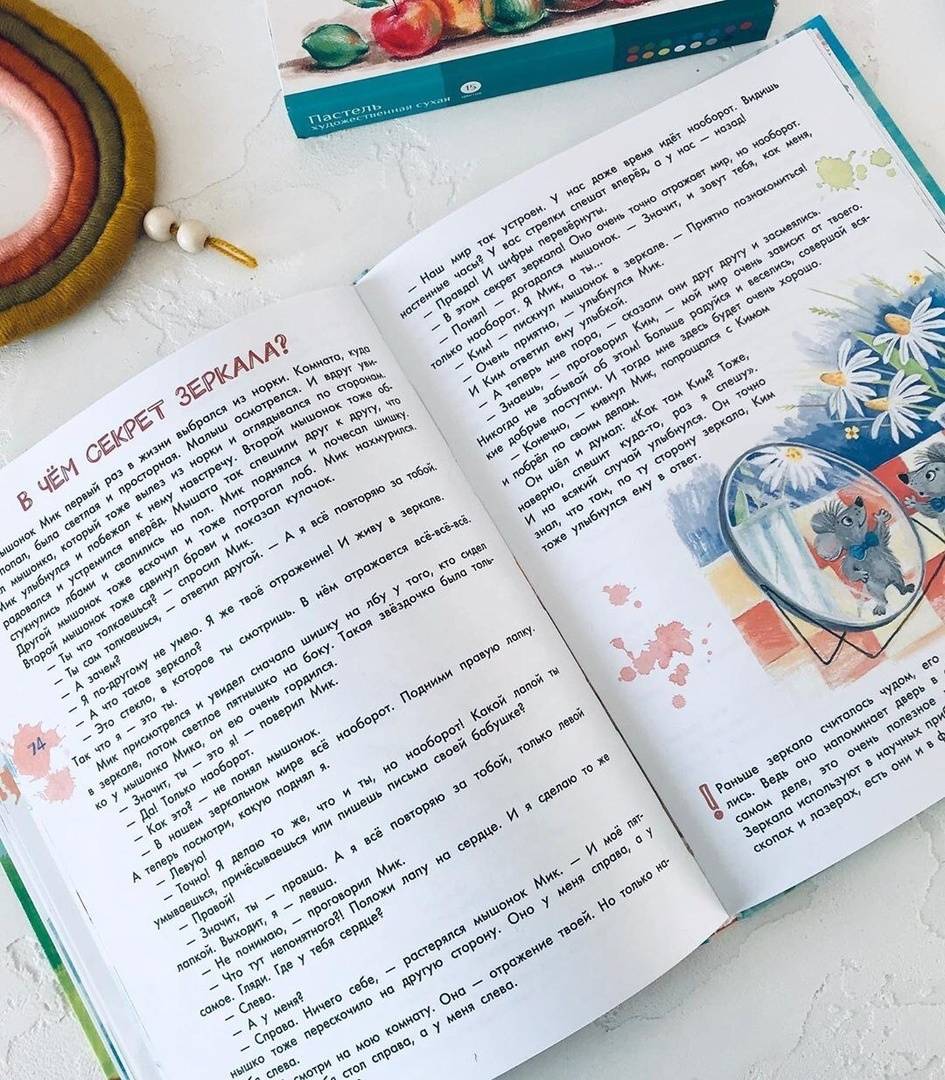 Пастель
художественная сухая
15
В ЧЁМ СЕКРЕТ ЗЕРКАЛА?
Мик первый раз в жизни выбрался из норки. Комната, куда
попал, была светлая и просторная. Малыш осмотрелся. И вдруг уви-
мышонка, который тоже вылез из норки и оглядывался по сторонам.
Мик улыбнулся и побежал к нему навстречу. Второй мышонок тоже об-
радовался и устремился вперёд. Мышата так спешили друг к другу, что
стукнулись лбами и свалились на пол. Мик поднялся и почесал шишку.
Другой мышонок тоже вскочил и тоже потрогал лоб. Мик нахмурился.
Второй мышонок тоже сдвинул брови и показал кулачок.
– Ты что толкаешься? – спросил Мик.
– Ты сам толкаешься, – ответил другой. – А я всё повторяю за тобой.
– А зачем?
– Я по-другому не умею. Я же твоё отражение! И живу в зеркале.
– А что такое зеркало?
– Это стекло, в которое ты смотришь. В нём отражается всё-всё-всё.
Так что я – это ты.
Мик присмотрелся и увидел сначала шишку на лбу у того, кто сидел
в зеркале, потом светлое пятнышко на боку. Такая звёздочка была толь-
ко у мышонка Мика, он ею очень гордился.
– Значит, ты – это я! – поверил Мик.
– Да! Только наоборот.
– Как это? – не понял мышонок.
– В нашем зеркальном мире всё наоборот. Подними правую лапку.
А теперь посмотри, какую поднял я.
– Левую!
– Точно! Я делаю то же, что и ты, но наоборот! Какой лапой ты
умываешься, причёсываешься или пишешь письма своей бабушке?
– Правой!
– Значит, ты – правша. А я всё повторяю за тобой, только левой
лапкой. Выходит, я – левша.
– Не понимаю, – проговорил Мик.
– Что тут непонятного?! Положи лапу на сердце. И я сделаю то же
самое. Гляди. Где у тебя сердце?
– Слева.
– А у меня?
– Справа. Ничего себе, – растерялся мышонок Мик. – И моё пят-
нышко тоже перескочило на другую сторону. Оно у меня справа, а у
слева.
смотри на мою комнату. Она – отражение твоей. Но только на-
стол справа, а у меня слева.
74
– Наш мир так устроен. У нас даже время идёт наоборот. Видишь
настенные часы? У вас стрелки спешат вперёд, а у нас – назад!
– Правда! И цифры перевёрнуты.
– В этом секрет зеркала! Оно очень точно отражает мир, но наоборот.
– Понял! – догадался мышонок. – Значит, и зовут тебя, как меня,
только наоборот. Я Мик, а ты...
– Ким! – пискнул мышонок в зеркале. – Приятно познакомиться!
– Очень приятно, – улыбнулся Мик.
И Ким ответил ему улыбкой.
– А теперь мне пора, – сказали они друг другу и засмеялись.
– Знаешь, – проговорил Ким, – мой мир очень зависит от твоего.
Никогда не забывай об этом! Больше радуйся и веселись, совершай вся-
кие добрые поступки. И тогда мне здесь будет очень хорошо.
– Конечно, – кивнул Мик, попрощался с Кимом
и побрёл по своим делам.
Он шёл и думал: «Как там Ким? Тоже,
наверно, спешит куда-то, раз я спешу».
И на всякий случай улыбнулся. Он точно
знал, что там, по ту сторону зеркала, Ким
тоже улыбнулся ему в ответ.
Раньше зеркало считалось чудом, его
лись. Ведь оно напоминает дверь в
самом деле, это очень полезное
Зеркала используют в научных
скопах и лазерах, есть они и в